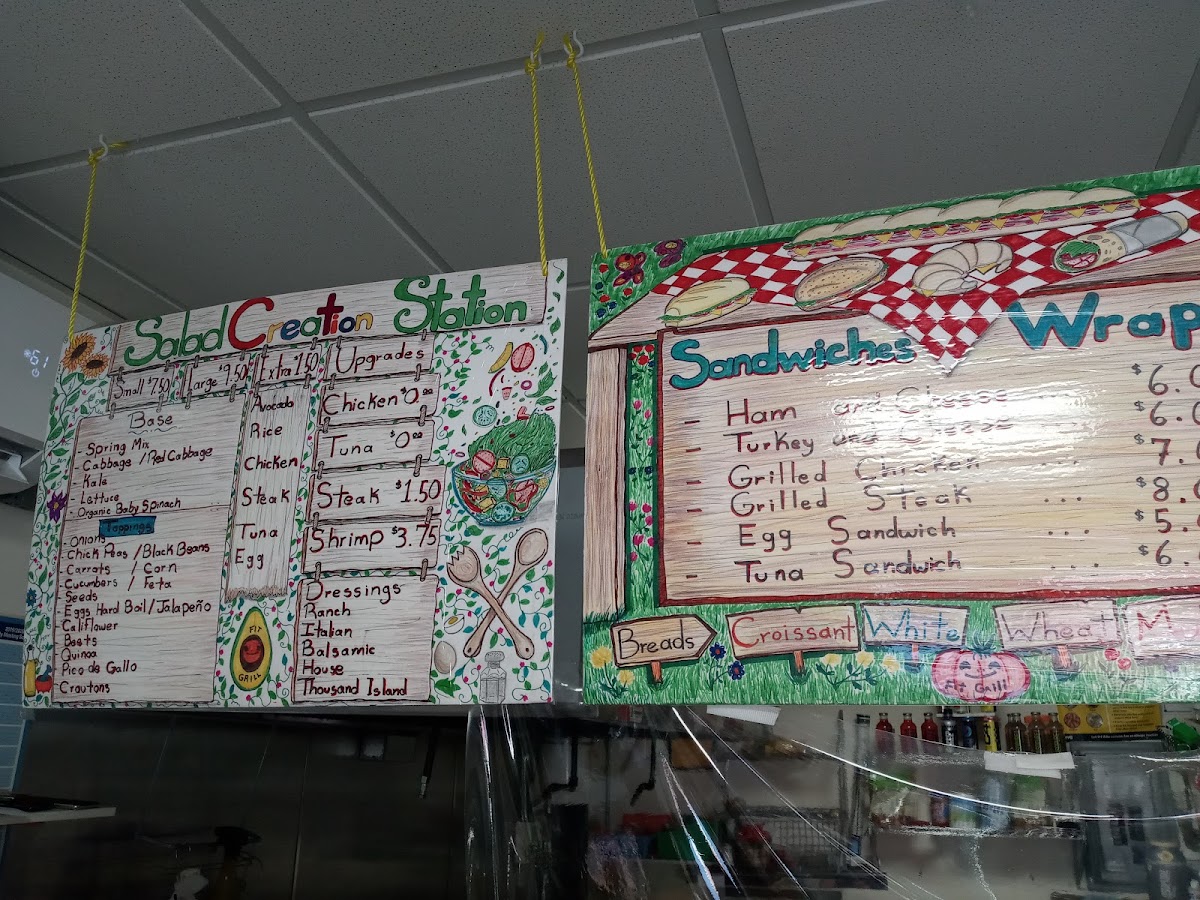 Salad Creation Station
Small $7.50
Large $9.50
Extra 1.50
Upgrades
Base
- Spring Mix
- Cabbage / Red Cabbage
- Kale
- Lettuce
- Organic Baby Spinach
Toppings
- Onions
- Chick Peas / Black Beans
- Carrots / Corn
- Cucumbers / Feta
- Seeds
- Eggs Hard Boil / Jalapeño
Califlower
Beets
Quinoa
Pico de Gallo
Croutons
Avocado
Rice
Chicken
Steak
Tuna
Egg
Chicken $0.00
Tuna $0.00
Steak $1.50
Shrimp $3.75
Dressings
Ranch
Italian
Balsamic
House
Thousand Island
FIT
GRILL
Sandwiches Wrap
- Ham and Cheese $6.0
- Turkey and Cheese $6.0
- Grilled Chicken ... $7.0
- Grilled Steak ... $8.0
- Egg Sandwich ... $5.
- Tuna Sandwich ... $6.
Breads
Croissant
White
Wheat
Fit Grill